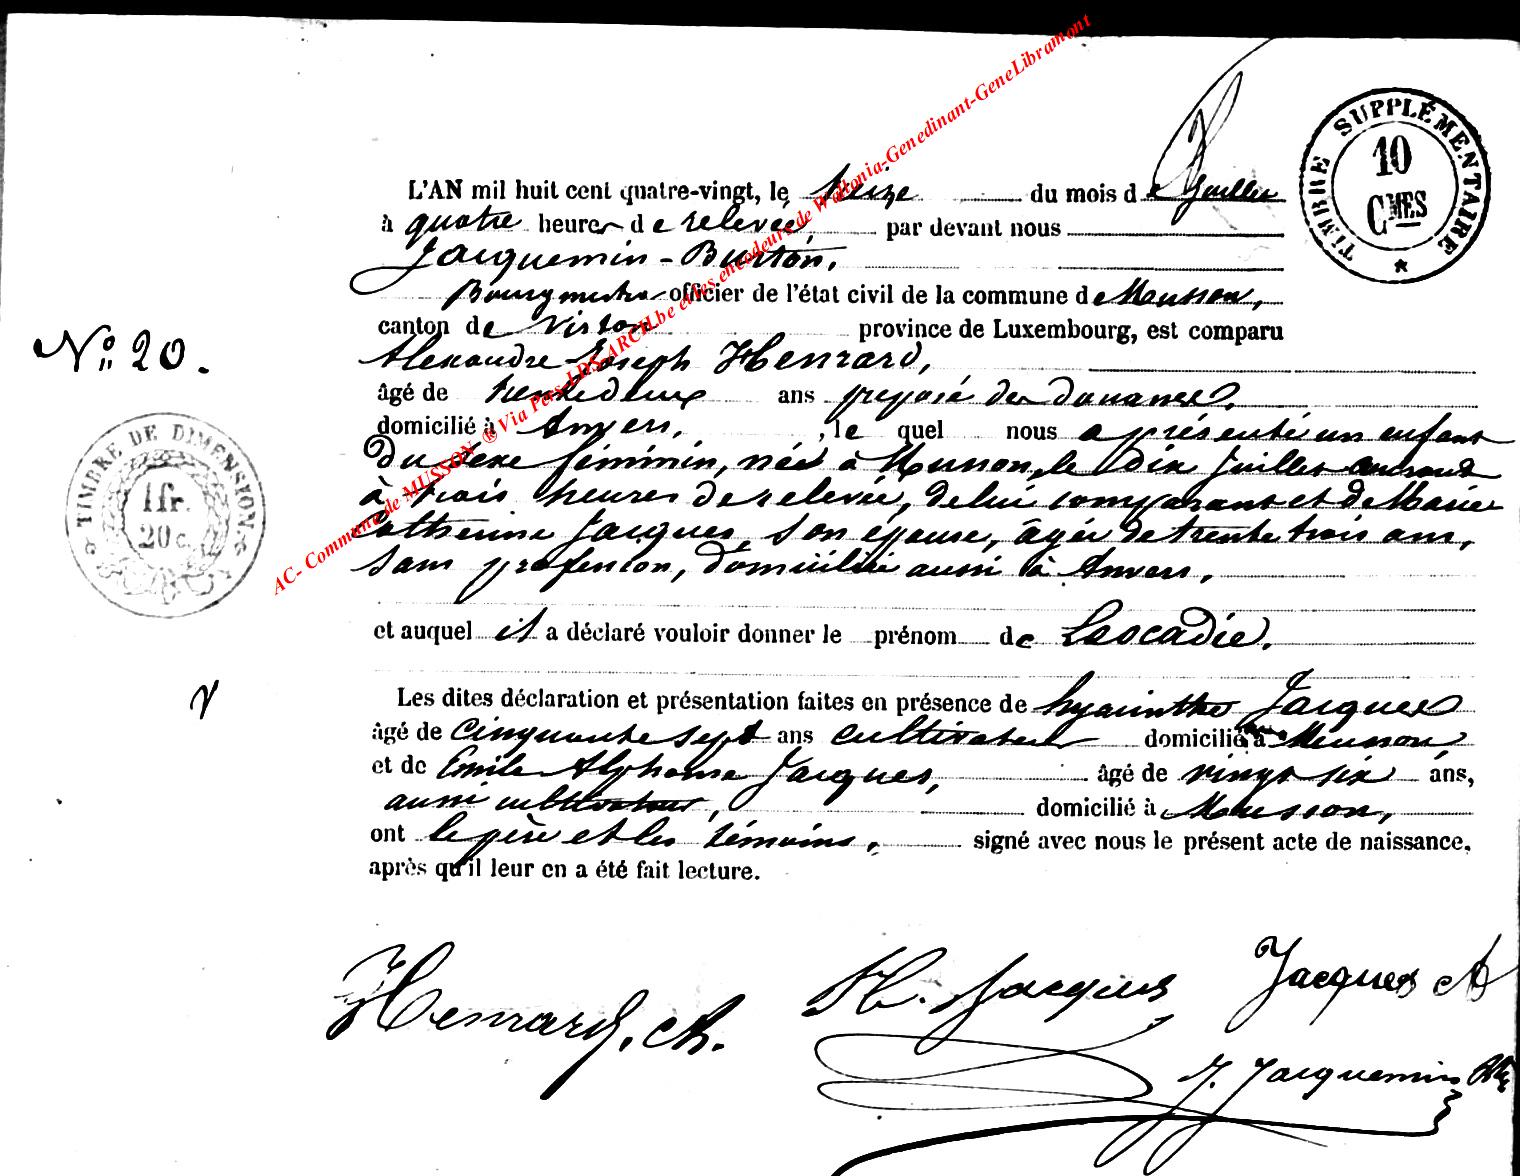 TIMBRE SUPPLÉMENTAIRE
10
CMES
L'AN mil huit cent quatre-vingt, le seize du mois de Juillet
à quatre heures de relevée, par devant nous
Jacquemin-Burton,
Bourgmestre officier de l'état civil de la commune de Musson,
canton de Virton province de Luxembourg, est comparu
Alexandre Joseph Henrard,
âgé de trente deux ans préposé des douanes,
domicilié à Anvers, , le quel nous a présenté un enfant
du sexe féminin, née à Musson, le dix Juillet courant
à trois heures de relevée, de lui comparant et de Marie
Catherine Jacques, son épouse, âgée de trente trois ans,
sans profession, domiciliée aussi à Anvers,
et auquel il a déclaré vouloir donner le prénom de Léocadie.
Les dites déclaration et présentation faites en présence de hyacinthe Jacques
âgé de cinquante sept ans cultivateur domicilié à Musson,
et de Emile Alphonse Jacques, âgé de vingt six ans,
aussi cultivateur, domicilié à Musson,
ont le père et les témoins, signé avec nous le présent acte de naissance,
après qu'il leur en a été fait lecture.
No 20.
TIMBRE DE DIMENSION
1fr.
20 c.
AC- Commune de MUSSON ® Via Pers-LDS-ARCH.be et les encodeurs de Wallonia-Genedinant-GeneLibramont
Henrard, A.
H. Jacques
Jacques A
J. Jacquemin